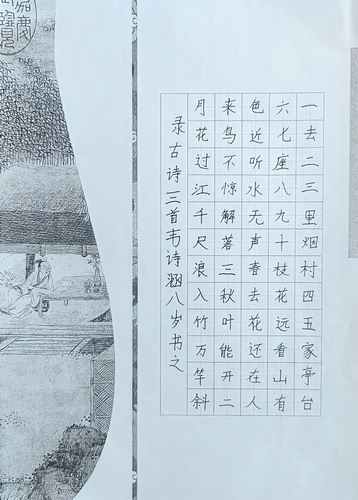 一去二三里烟村四五家亭台
六七座八九十枝花远看山有
色近听水无声春去花还在人
来鸟不惊解落三秋叶能开二
月花过江千尺浪入竹万竿斜
录古诗三首韦诗涵八岁书之